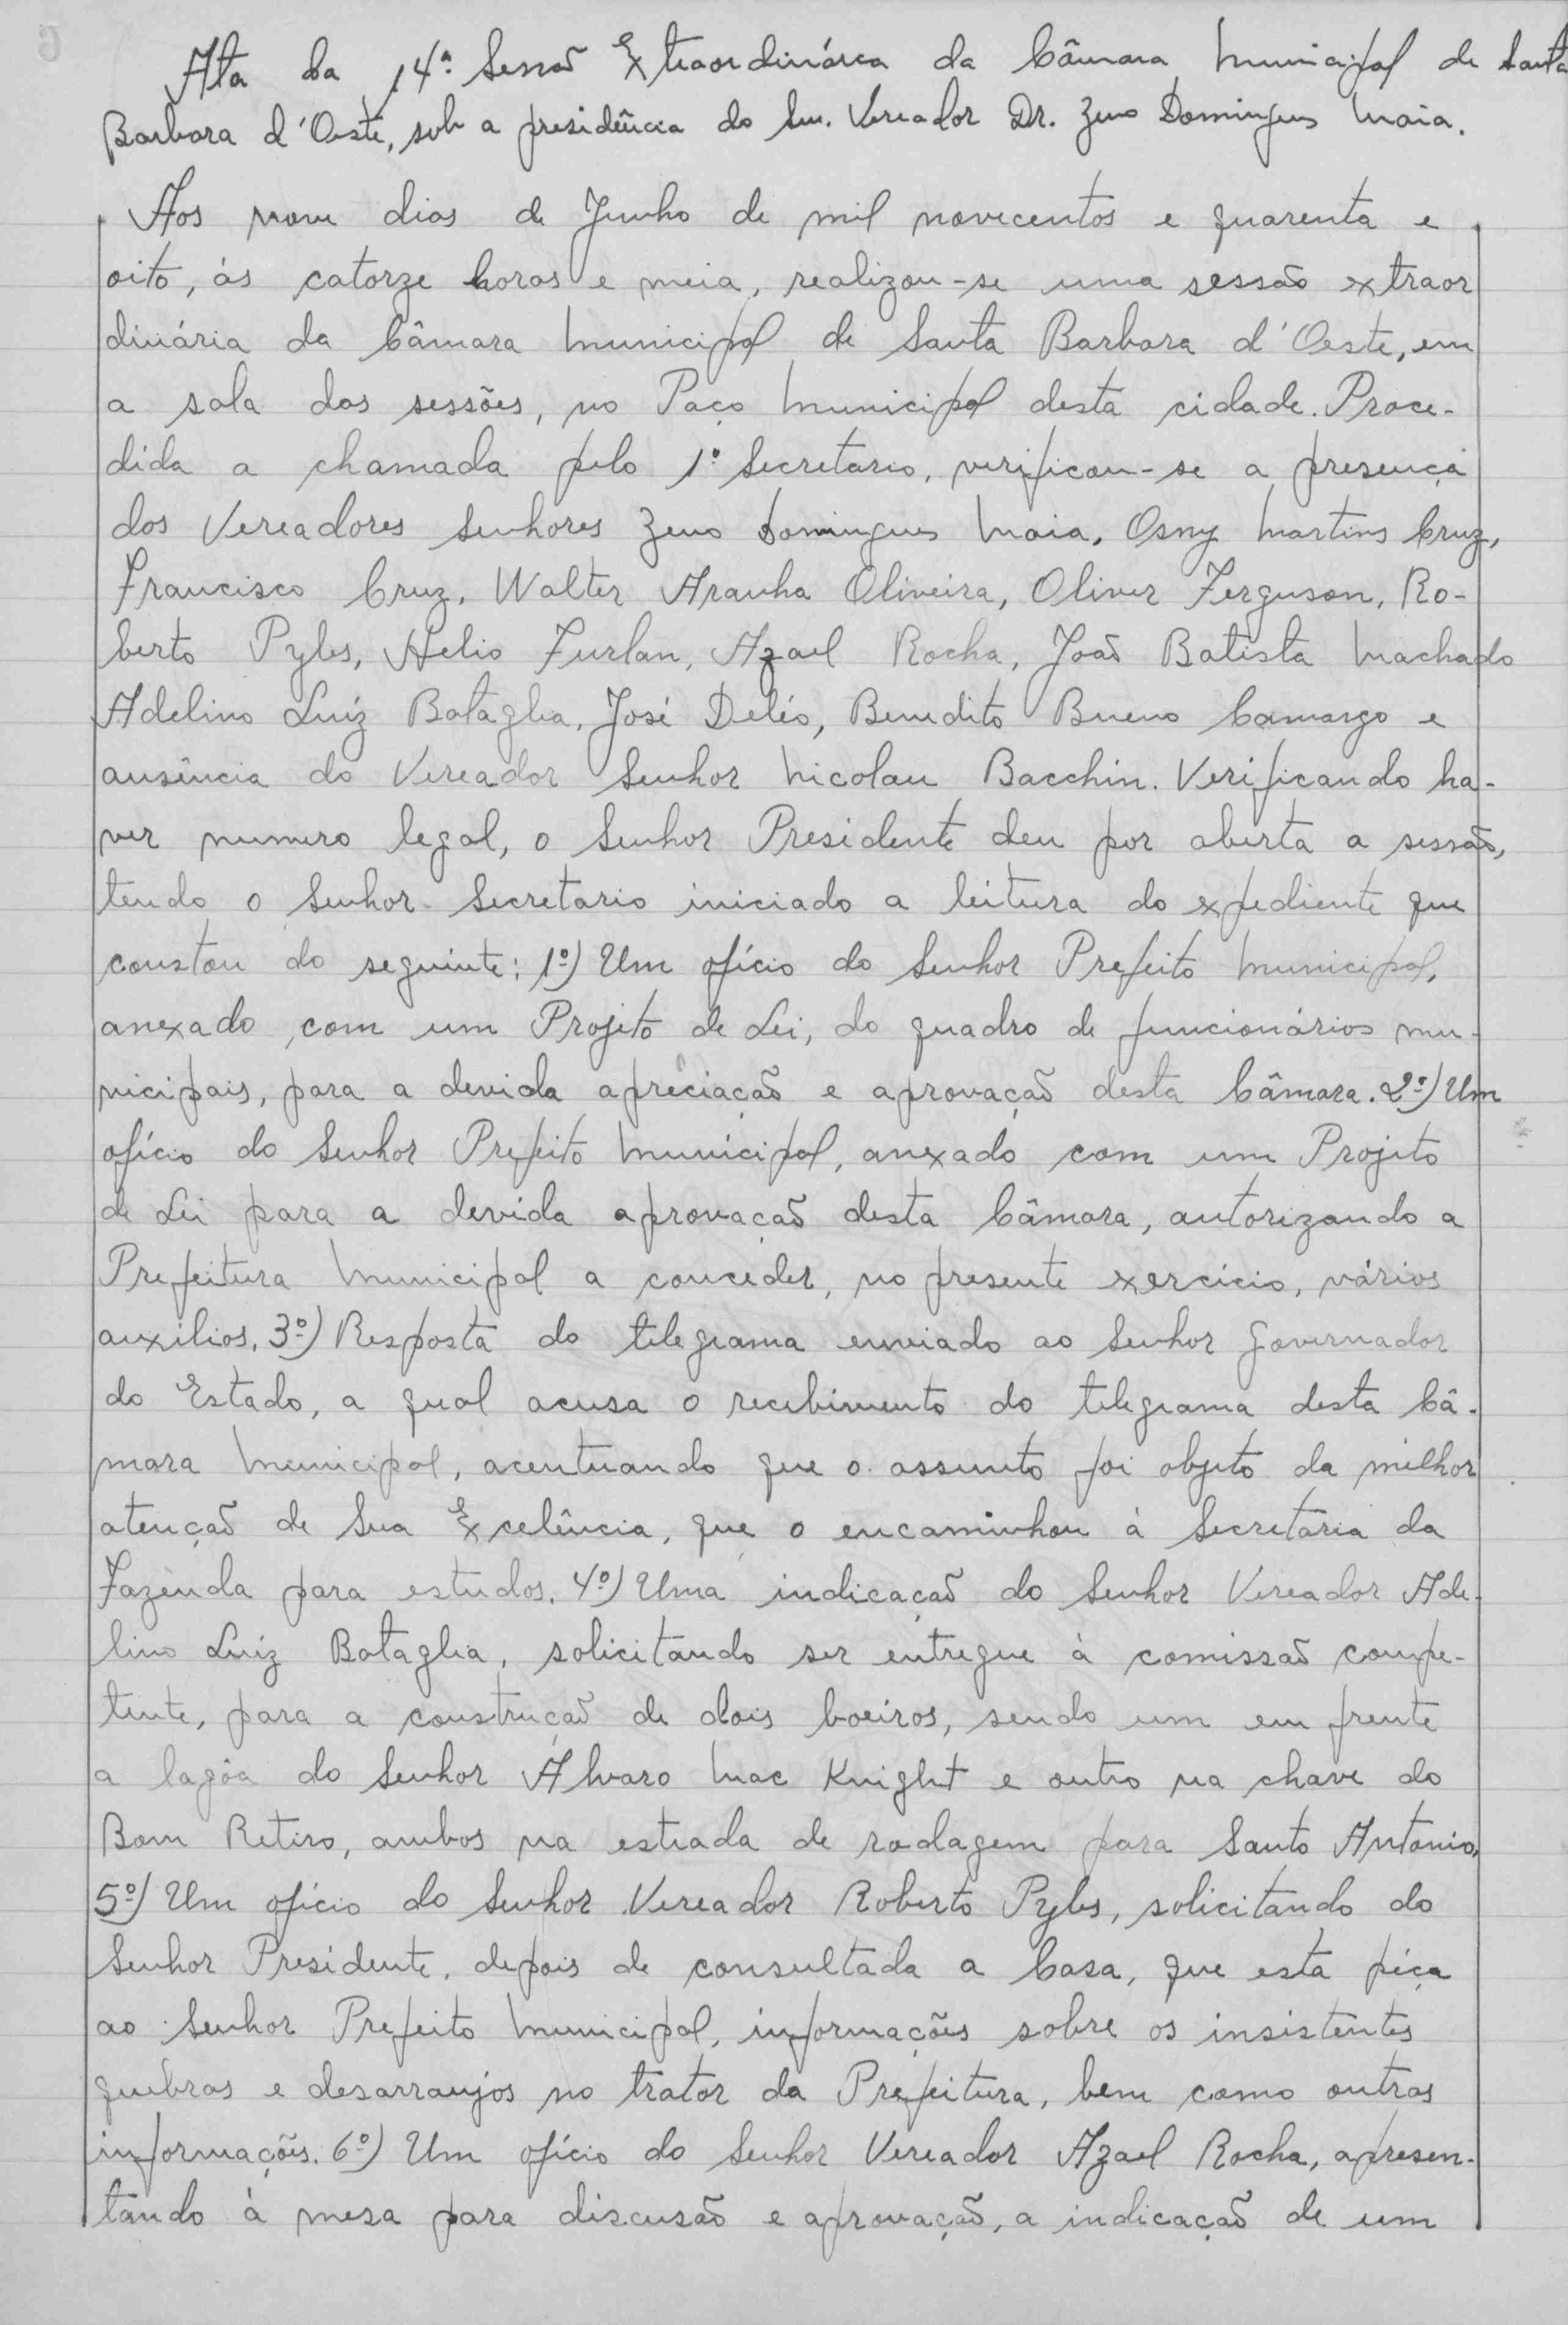 Ata da 14ª Sessão Extraordinárea da Câmara Municipal de Santa
Barbara d'Oeste, sob a presidência do Snr. Vereador Dr. Zeno Domingues Maia.
Aos nove dias de Junho de mil novecentos e quarenta e
oito, ás catorze horas e meia, realizou-se uma sessão extraor
dinária da Câmara Municipal de Santa Barbara d'Oeste, em
a sala das sessões, no Paço Municipal desta cidade. Proce-
dida a chamada pelo 1º Secretario, verificou-se a presença
dos Vereadores Senhores Zeno Domingues Maia, Osny Martins Cruz,
Francisco Cruz, Walter Aranha Oliveira, Oliver Ferguson, Ro-
berto Pyles, Helio Furlan, Azael Rocha, João Batista Machado
Adelino Luíz Bataglia, José Deléo, Benedito Bueno Camargo e
ausência do Vereador Senhor Nicolau Bacchin. Verificando ha-
ver numero legal, o Senhor Presidente deu por aberta a sessão,
tendo o Senhor Secretario iniciado a leitura do expediente que
constou do seguinte: 1º) Um ofício do Senhor Prefeito Municipal,
anexado, com um Projeto de Lei, do quadro de funcionários mu-
nicipais, para a devida apreciação e aprovação desta Câmara. 2º) Um
ofício do Senhor Prefeito Municipal, anexado com um Projeto
de Lei para a devida aprovação desta Câmara, autorizando a
Prefeitura Municipal a conceder, no presente exercício, vários
auxílios. 3º) Resposta do telegrama enviado ao Senhor Governador
do Estado, a qual acusa o recebimento do telegrama desta Câ-
mara Municipal, acentuando que o assunto foi objeto da melhor
atenção de Sua Excelência, que o encaminhou à Secretaria da
Fazenda para estudos. 4º) Uma indicação do Senhor Vereador Ade-
lino Luíz Bataglia, solicitando ser entregue à comissão compe-
tente, para a construção de dois boeiros, sendo um em frente
a lagôa do Senhor Alvaro Mac Knight e outro na chave do
Bom Retiro, ambos na estrada de rodagem para Santo Antonio.
5º) Um ofício do Senhor Vereador Roberto Pyles, solicitando do
Senhor Presidente, depois de consultada a Casa, que esta péça
ao Senhor Prefeito Municipal, informações sobre os insistentes
quebras e desarranjos no trator da Prefeitura, bem como outras
informações. 6º) Um ofício do Senhor Vereador Azael Rocha, apresen-
tando à mesa para discusão e aprovação, a indicação de um